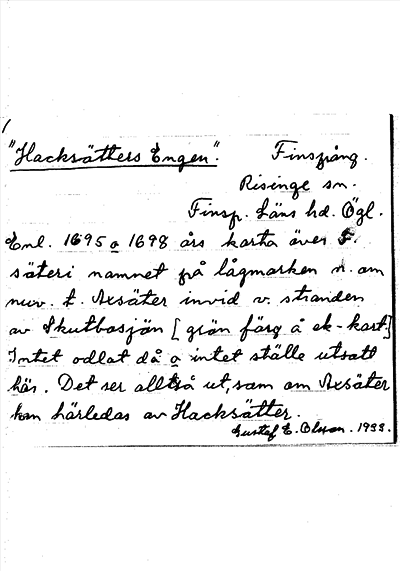 "Hacksätters Engen". Finspång.
Risinge sn.
Finsp. Läns hd. Ögl.
Enl. 1695 o 1698 års karta över F.
säteri namnet på lågmarken n. om
nuv. t. Axsäter invid v. stranden
av Skutbosjön [grön färg å ek-kart.]
Intet odlat då o intet ställe utsatt
här. Det ser alltså ut, som om Axsäter
kan härledas av Hacksätter.
Gustaf E. Olsson. 1933.